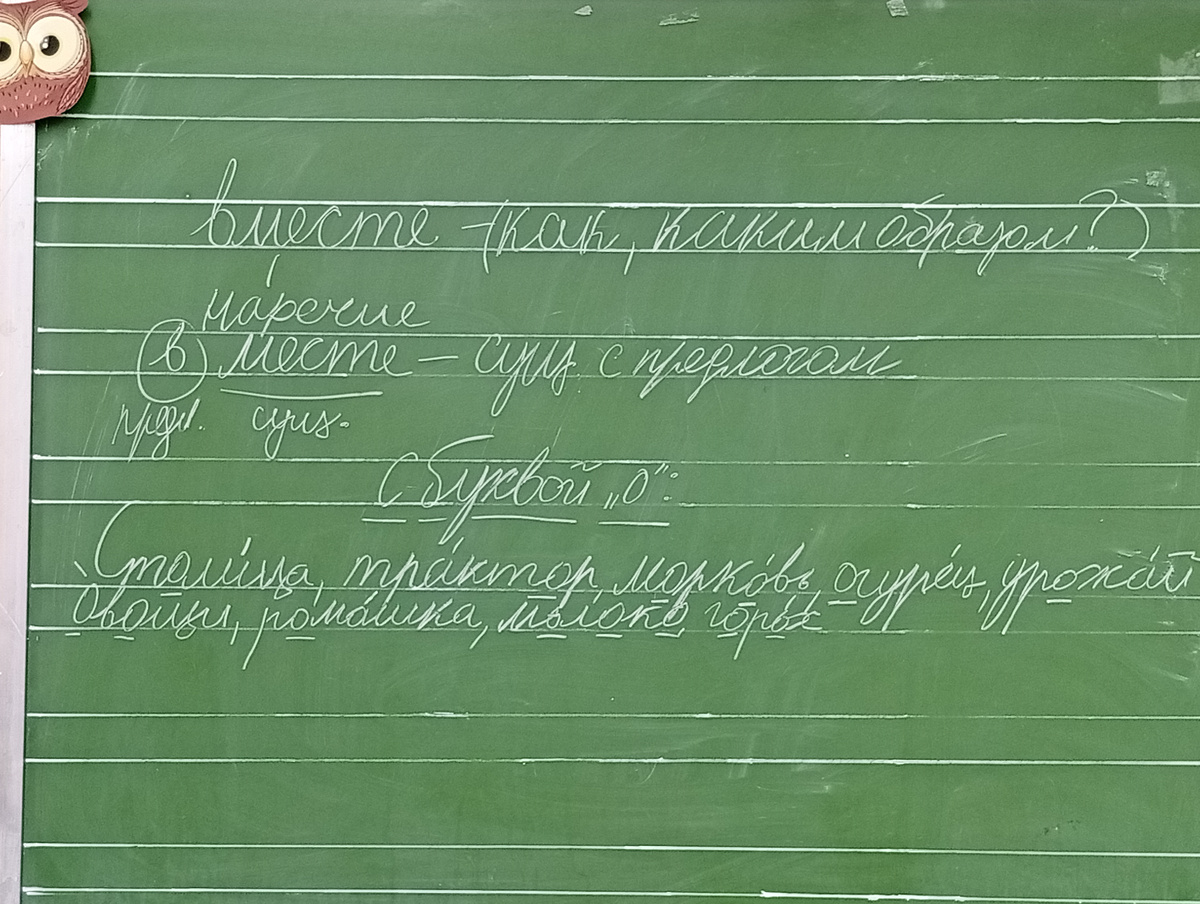 вместе - (как, каким образом?)
наречие
(в) месте - сущ. с предлогом
предл. сущ.
С буквой „О“:
Столица, трактор, морковь, огурец, урожай
овощи, ромашка, молоко,